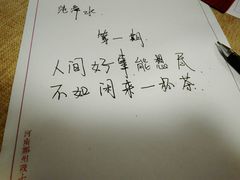 纯净水
第一期
人间好事能想及
不如闲来一杯茶
河南郑州茂